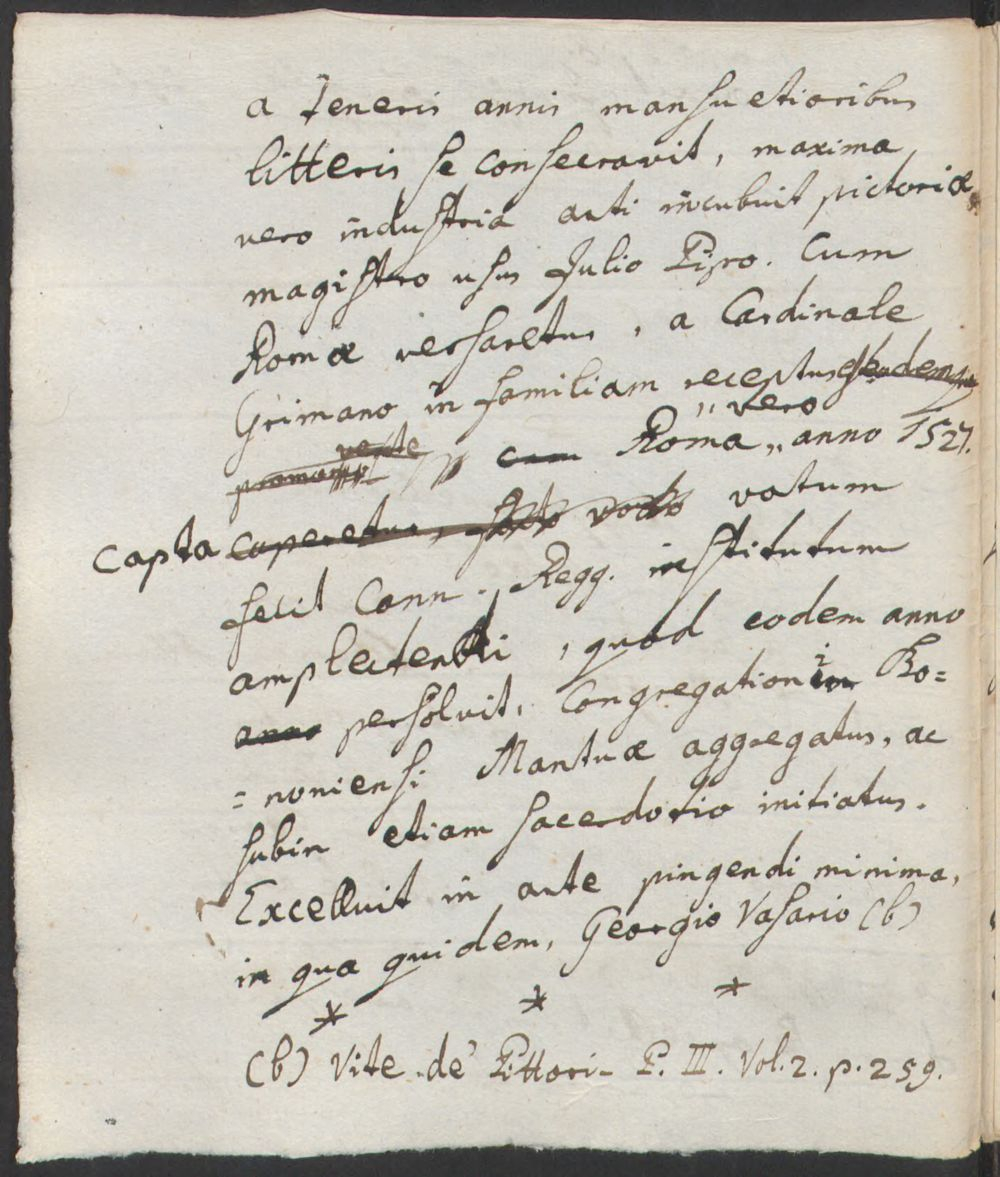 a teneris annis mansuetioribus
litteris se consecravit, maxima
vero industria arti incubuit pictoriæ
magistro usus Julio Pipo. Cum
Romæ versaretur, a Cardinale
Grimano in familiam receptus
vero
cum Roma „ anno 1527.
capta caperetur, facto voto votum
fecit Cann. Regg. institutum
amplectendi, quod eodem anno
anno persolvit, Congregationi Bo=
=noniensi Mantuæ aggregatus, ac
subin etiam sacerdotio initiatus.
Excelluit in arte pingendi minima,
in qua quidem, Georgio Vasario (b)
* * *
(b) Vite de' Pittori - P. III. Vol. 2. p. 259.